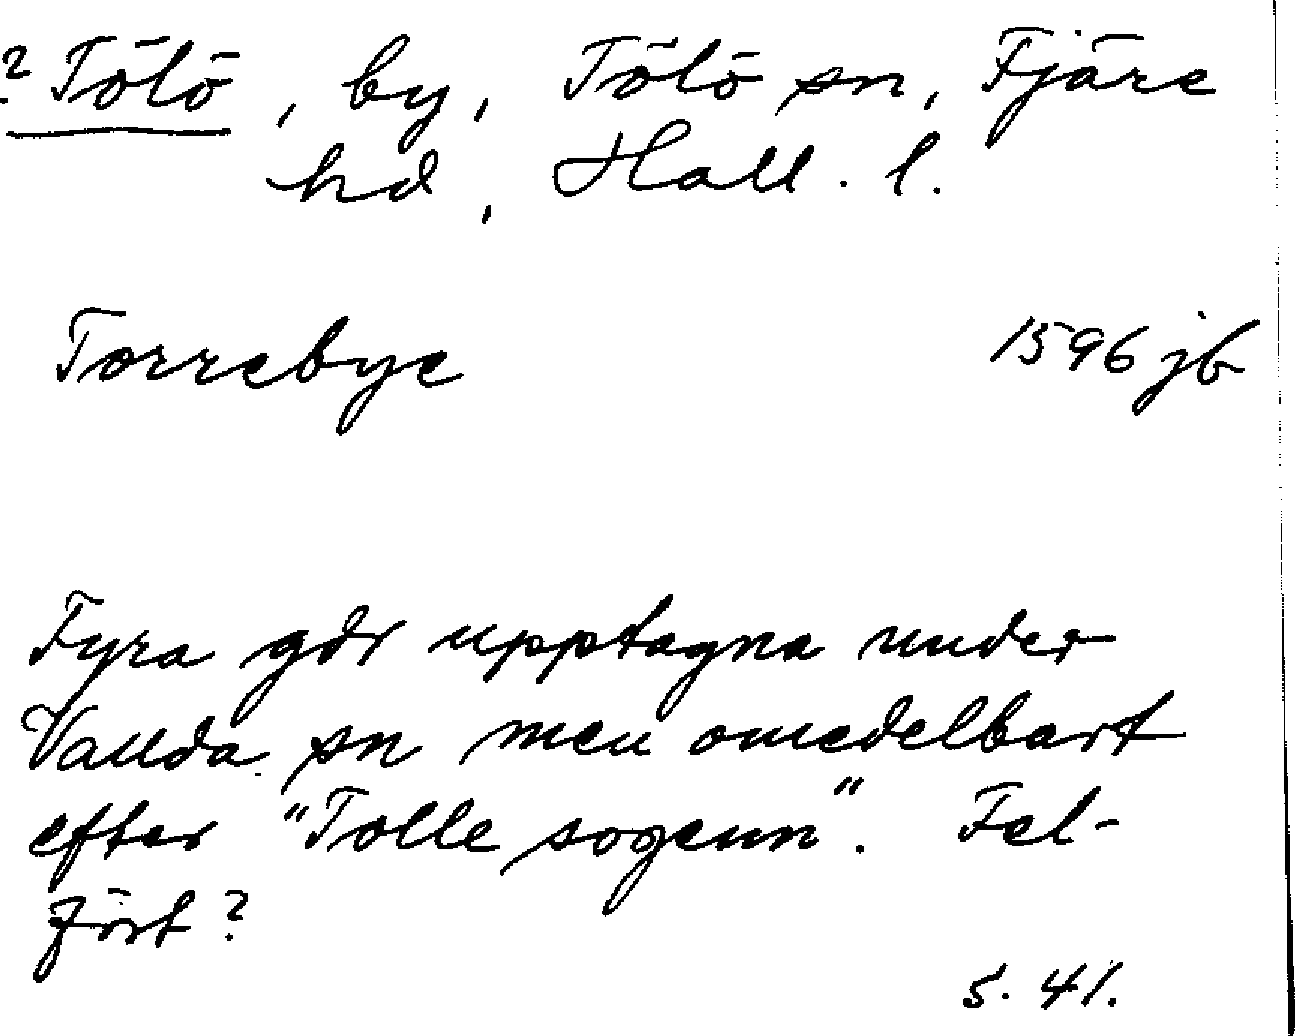 ? Tölö, by, Tölö sn, Fjäre
hd, Hall. l.
Torrebye 1596 jb
Fyra gdr upptagna under
Vallda sn men omedelbart
efter "Tolle sogenn". Fel-
fört?
s. 41.